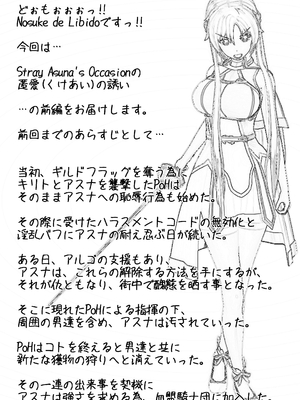 どぉもぉぉぉっ!!
Nosuke de Libidoですっ!!
今回は…
Stray Asuna's Occasionの
匿愛(くけあい)の誘い
…の前編をお届けします。
前回までのあらすじとして…
当初、ギルドフラッグを奪う為に
キリトとアスナを襲撃したPoHは
そのままアスナへの恥辱行為も始めた。
その際に受けたハラスメントコードの無効化と
淫乱バフにアスナの耐え忍ぶ日が続いた。
ある日、アルゴの支援もあり、
アスナは、これらの解除する方法を手にするが、
それが仇ともなり、街中で醜態を晒す事となった。
そこに現れたPoHによる指揮の下、
周囲の男達を含め、アスナは汚されていった。
PoHはコトを終えると男達と共に
新たな獲物の狩りへと消えていった。
その一連の出来事を契機に
アスナは強さを求める為、血盟騎士団に加入した。